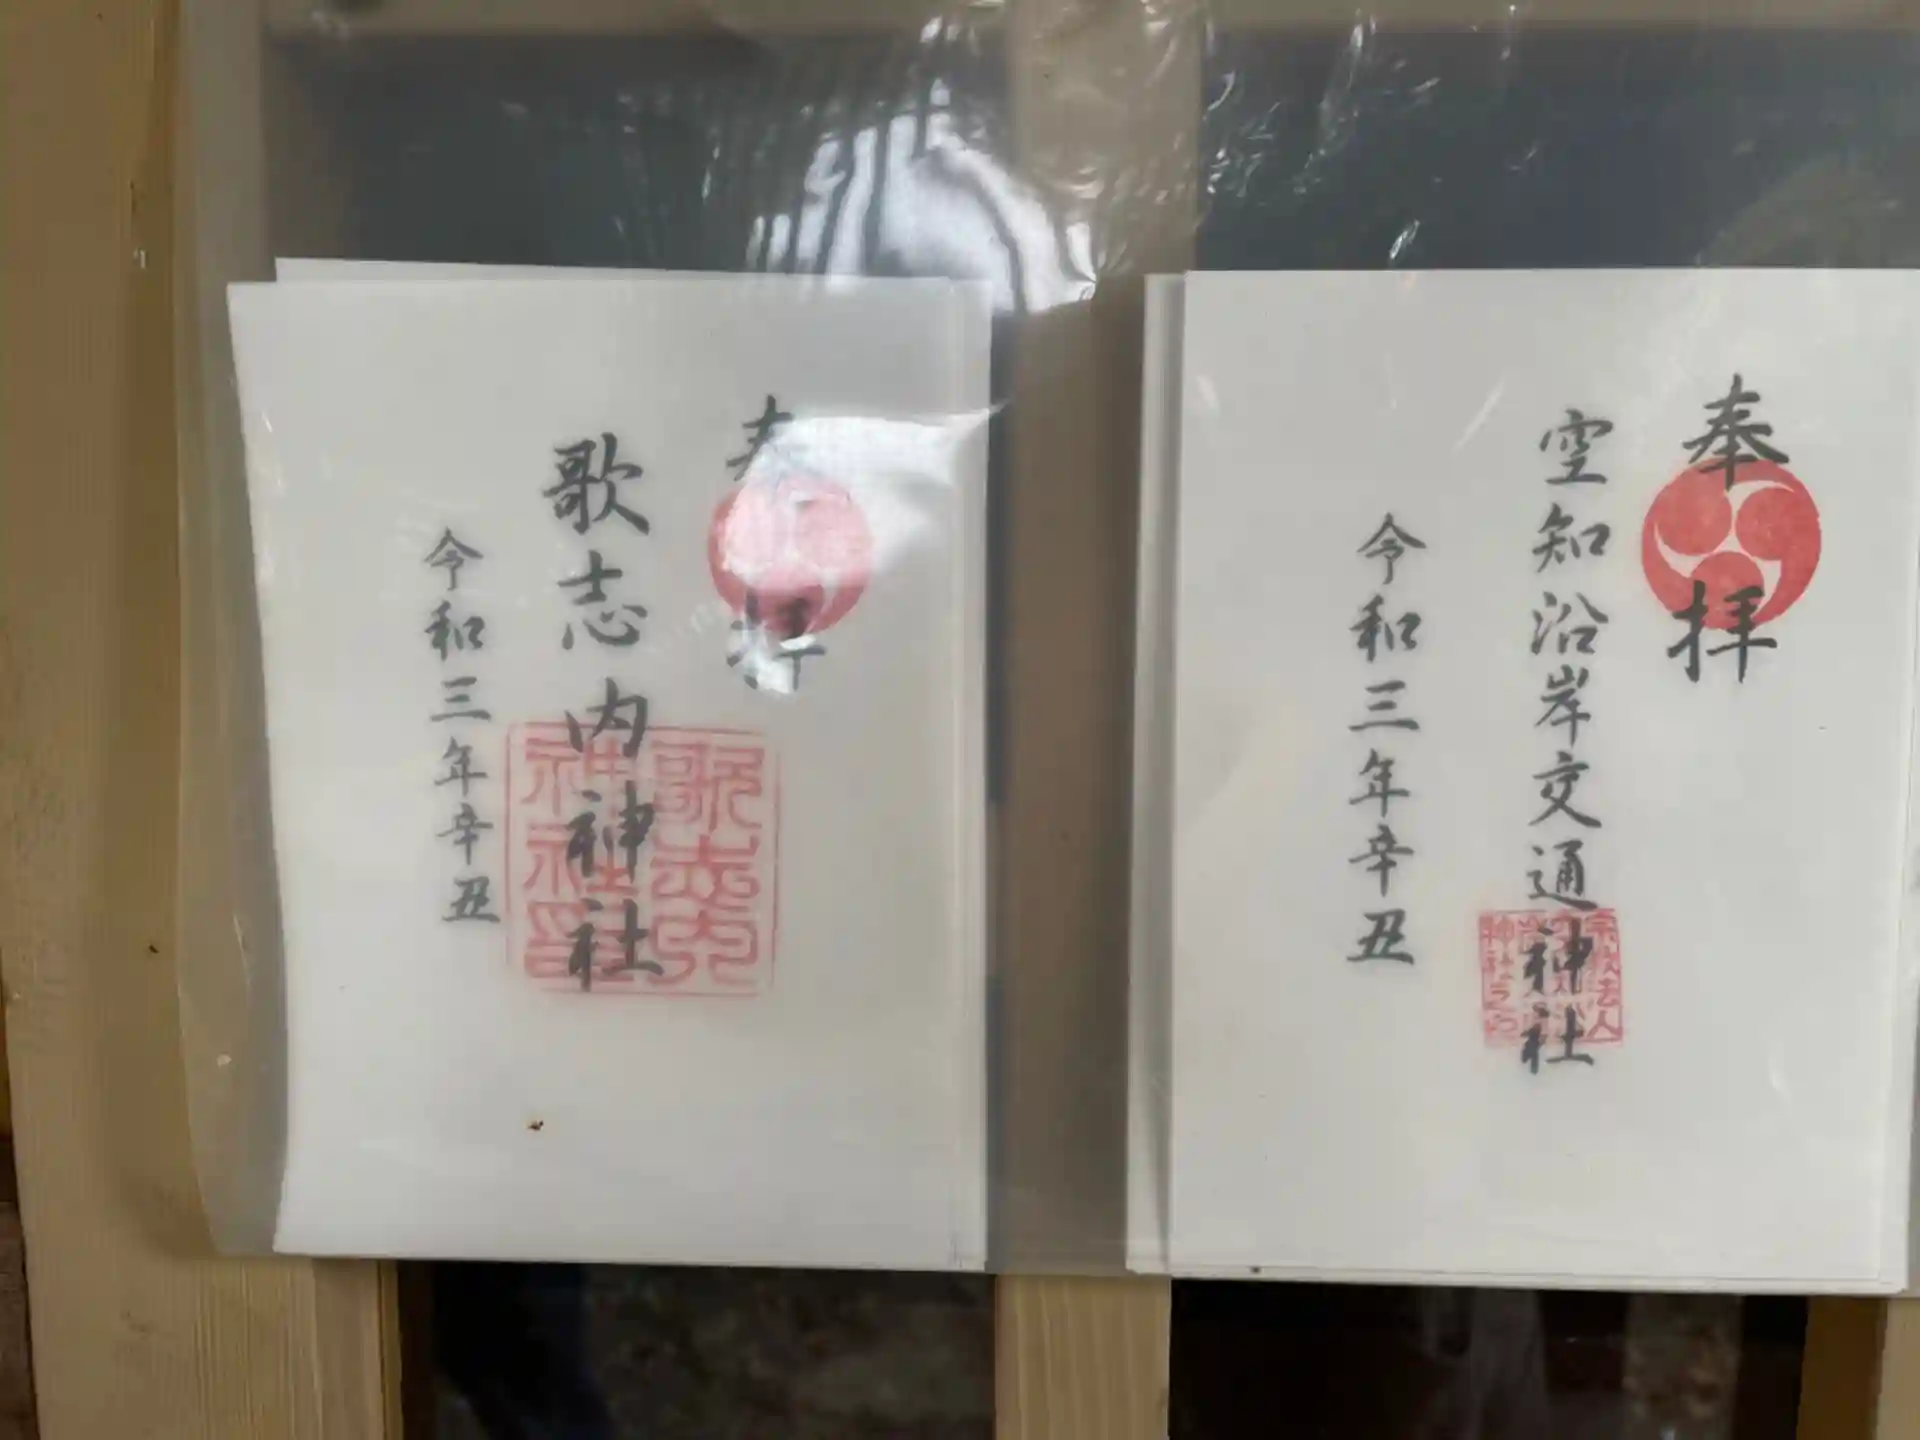 奉拝
歌志内神社
令和三年辛丑
歌志内
神社印
奉拝
空知沿岸交通神社
令和三年辛丑
宗教法人